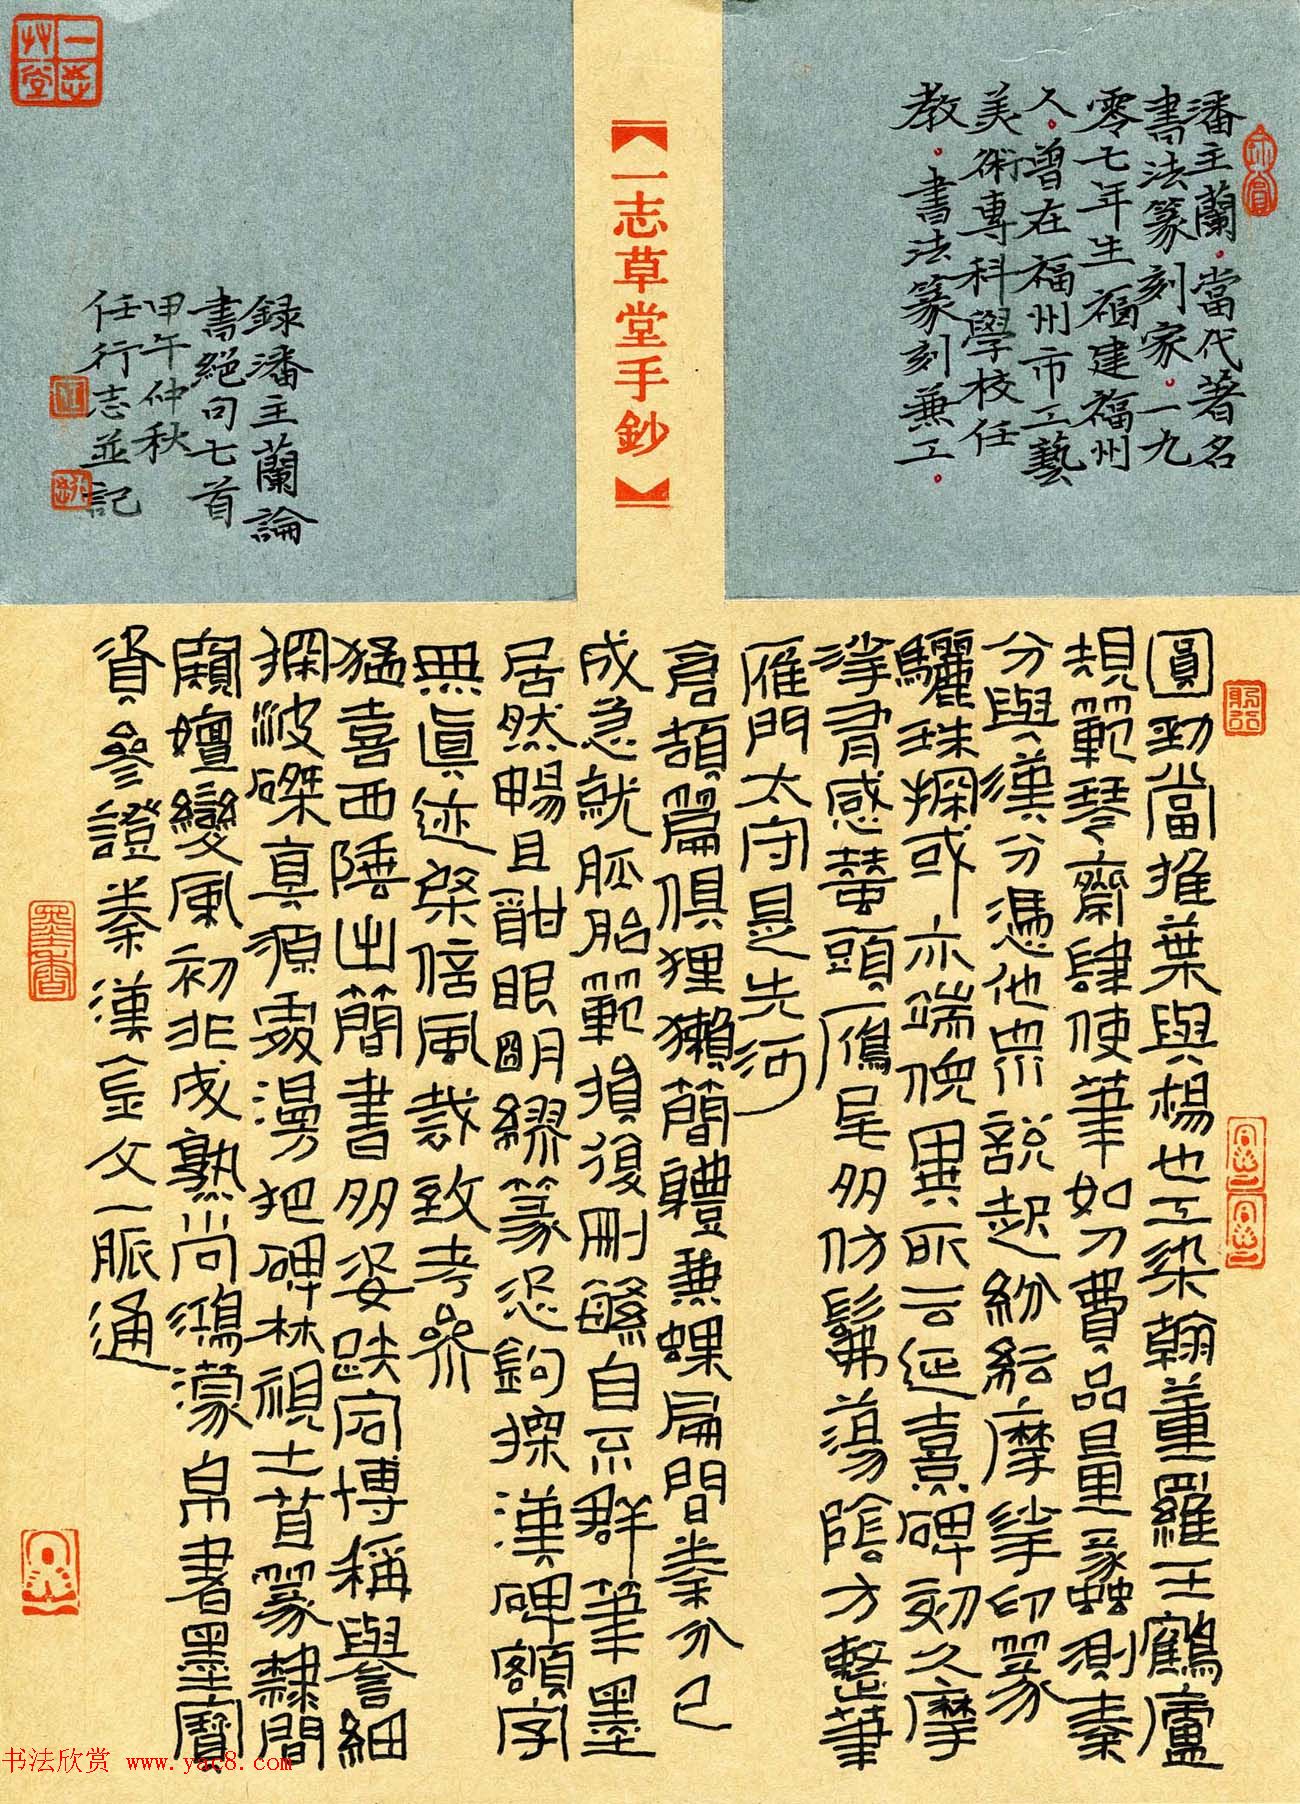 潘主蘭．當代著名
書法篆刻家．一九
零七年生福建福州
人．曾在福州市工藝
美術專科學校任
教．書法篆刻兼工．
【一志草堂手鈔】
錄潘主蘭論
書絕句七首
甲午仲秋
任行志並記
一志艸堂
圓勁當推葉與楊也工染翰董羅王鶴廬
規範琴齋肆使筆如刀費品量蟊蟲測秦
分與漢分憑他眾說起紛紜摩挲印篆
驪珠探或亦端倪異所云延熹碑刻久摩
挲肩感蠆頭雁尾多仿髴蕩陰方整筆
雁門太守是先河
倉頡篇俱狸獺簡體兼螺扁間秦分已
成急就胚胎範損復刪繇自不群筆墨
居然暢且酣眼明繆篆恐鉤探漢碑額字
無真迹槃信風裁致考參
猛喜西陲出簡書多姿跌宕博稱譽細
探波磔真源處漫把碑林視土苴篆隸間
廁嬗變風初非成熟尚鴻濛帛書墨寶
資參證秦漢金文一脈通
书法欣赏 www.yac8.com